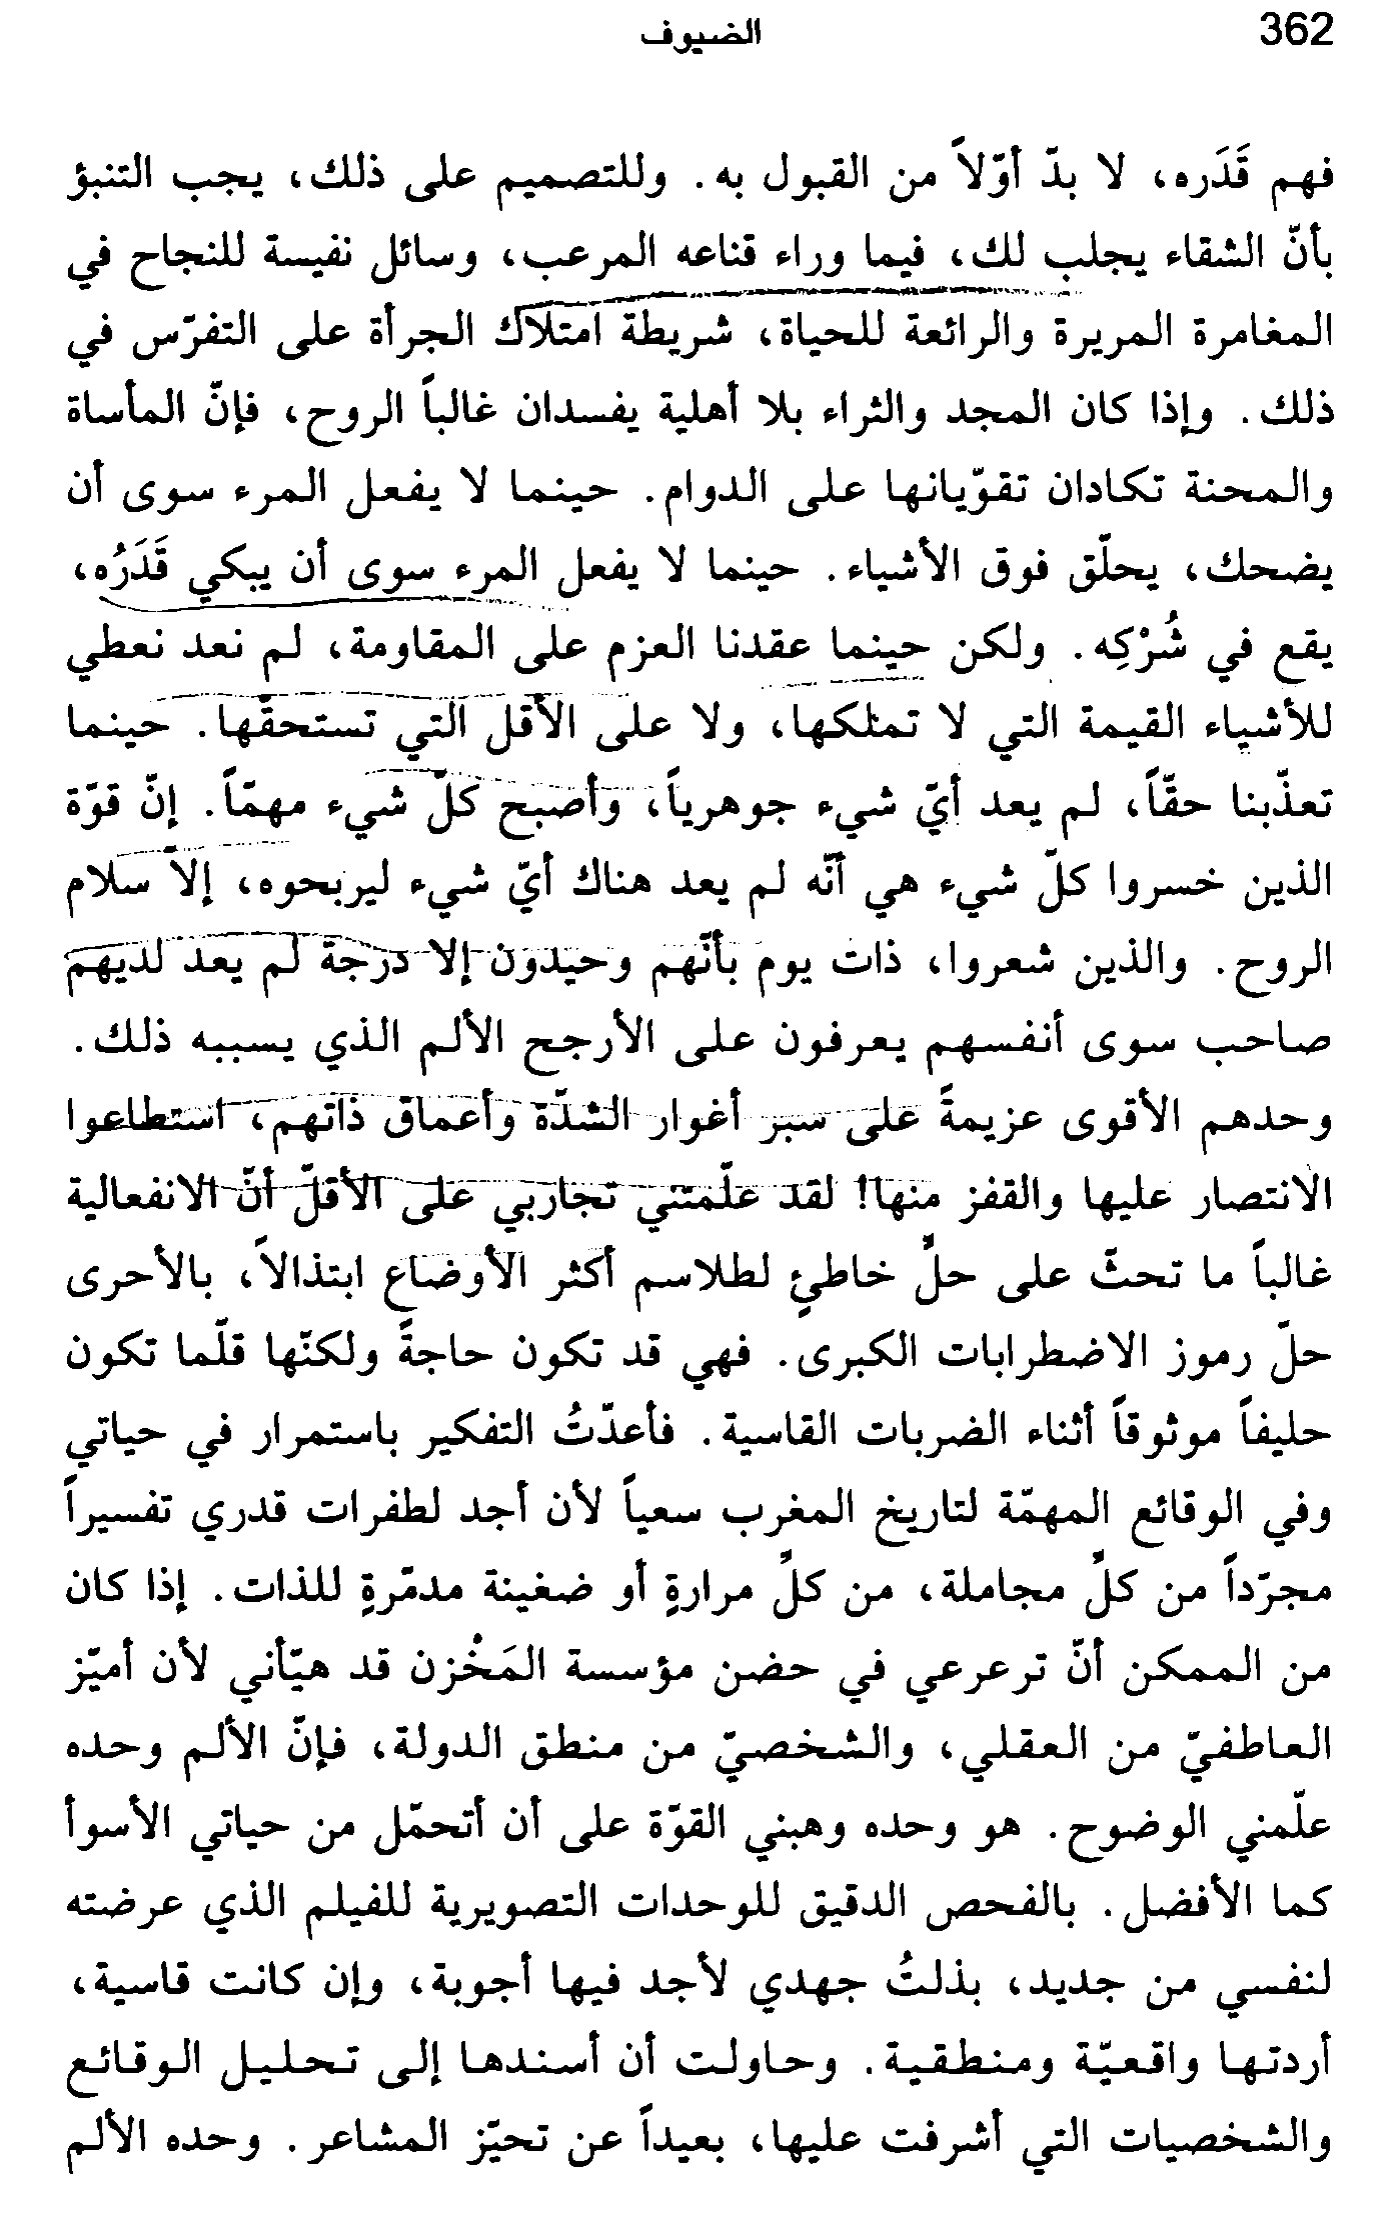 362
الضيوف
فهم قَدَره، لا بدّ أوّلاً من القبول به. وللتصميم على ذلك، يجب التنبؤ
بأنّ الشقاء يجلب لك، فيما وراء قناعه المرعب، وسائل نفيسة للنجاح في
المغامرة المريرة والرائعة للحياة، شريطة امتلاك الجرأة على التفرّس في
ذلك. وإذا كان المجد والثراء بلا أهلية يفسدان غالباً الروح، فإنّ المأساة
والمحنة تكادان تقوّيانها على الدوام. حينما لا يفعل المرء سوى أن
يضحك، يحلّق فوق الأشياء. حينما لا يفعل المرء سوى أن يبكي قَدَرُه،
يقع في شُرْكِه. ولكن حينما عقدنا العزم على المقاومة، لم نعد نعطي
للأشياء القيمة التي لا تملكها، ولا على الأقل التي تستحقّها. حينما
تعذّبنا حقّاً، لم يعد أيّ شيء جوهرياً، وأصبح كلّ شيء مهمّاً. إنّ قوّة
الذين خسروا كلّ شيء هي أنّه لم يعد هناك أيّ شيء ليربحوه، إلاّ سلام
الروح. والذين شعروا، ذات يوم بأنّهم وحيدون إلا درجة لم يعد لديهم
صاحب سوى أنفسهم يعرفون على الأرجح الألم الذي يسببه ذلك.
وحدهم الأقوى عزيمةً على سبر أغوار الشدّة وأعماق ذاتهم، استطاعوا
الانتصار عليها والقفز منها! لقد علّمتني تجاربي على الأقلّ أنّ الانفعالية
غالباً ما تحثّ على حلٍّ خاطئٍ لطلاسم أكثر الأوضاع ابتذالاً، بالأحرى
حلّ رموز الاضطرابات الكبرى. فهي قد تكون حاجةً ولكنّها قلّما تكون
حليفاً موثوقاً أثناء الضربات القاسية. فأعدّتُ التفكير باستمرار في حياتي
وفي الوقائع المهمّة لتاريخ المغرب سعياً لأن أجد لطفرات قدري تفسيراً
مجرّداً من كلِّ مجاملة، من كلِّ مرارةٍ أو ضغينة مدمّرةٍ للذات. إذا كان
من الممكن أنّ ترعرعي في حضن مؤسسة المَخْزن قد هيّأني لأن أميّز
العاطفيّ من العقلي، والشخصيّ من منطق الدولة، فإنّ الألم وحده
علّمني الوضوح. هو وحده وهبني القوّة على أن أتحمّل من حياتي الأسوأ
كما الأفضل. بالفحص الدقيق للوحدات التصويرية للفيلم الذي عرضته
لنفسي من جديد، بذلتُ جهدي لأجد فيها أجوبة، وإن كانت قاسية،
أردتها واقعيّة ومنطقية. وحاولت أن أسندها إلى تحليل الوقائع
والشخصيات التي أشرفت عليها، بعيداً عن تحيّز المشاعر. وحده الألم